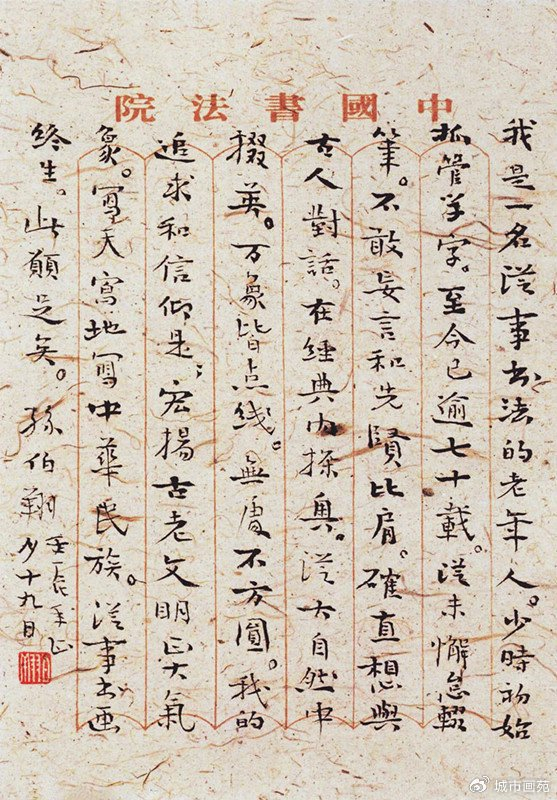 中國書法院
我是一名從事书法的老年人。少時初始
抓管学字。至今已逾七十載。從未懈怠輟
筆。不敢妄言和先賢比肩。確直想與
古人對話。在經典內探奥。從大自然中
掇英。万象皆点线。無處不方圓。我的
追求和信仰是；宏揚古老文明正大氣
象。寫天寫地寫中華民族。從事书画
终生。此願足矣。孫伯翔
壬辰年正
月十九日
城市画苑